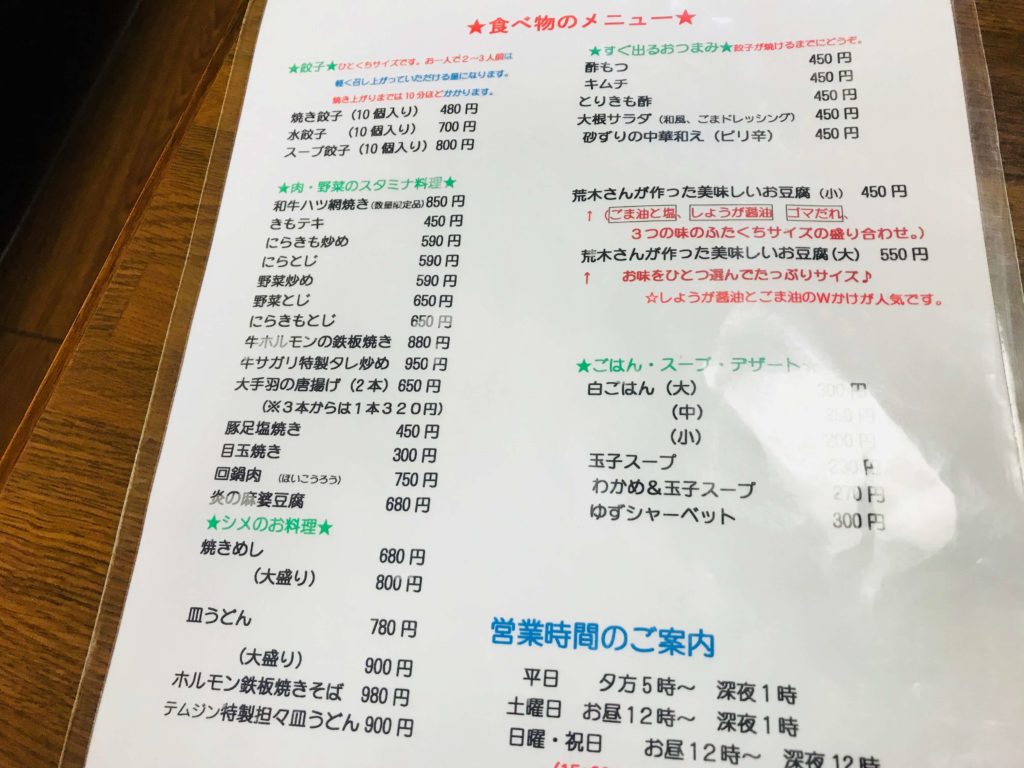 ★食べ物のメニュー★
★餃子★ひとくちサイズです。お一人で2～3人前は
軽く召し上がっていただける量になります。
焼き上がりまでは10分ほどかかります。
焼き餃子（10個入り） 480円
水餃子 （10個入り） 700円
スープ餃子（10個入り）800円
★肉・野菜のスタミナ料理★
和牛ハツ網焼き(数量限定品)850円
きもテキ 450円
にらきも炒め 590円
にらとじ 590円
野菜炒め 590円
野菜とじ 650円
にらきもとじ 650円
牛ホルモンの鉄板焼き 880円
牛サガリ特製タレ炒め 950円
大手羽の唐揚げ（2本）650円
（※3本からは1本320円）
豚足塩焼き 450円
目玉焼き 300円
回鍋肉 （ほいこうろう） 750円
炎の麻婆豆腐 680円
★シメのお料理★
焼きめし 680円
（大盛り） 800円
皿うどん 780円
（大盛り） 900円
ホルモン鉄板焼きそば 980円
テムジン特製担々皿うどん900円
★すぐ出るおつまみ★餃子が焼けるまでにどうぞ。
酢もつ 450円
キムチ 450円
とりきも酢 450円
大根サラダ（和風、ごまドレッシング） 450円
砂ずりの中華和え（ピリ辛） 450円
荒木さんが作った美味しいお豆腐（小） 450円
↑（ごま油と塩、しょうが醤油 ゴマだれ、
3つの味のふたくちサイズの盛り合わせ。）
荒木さんが作った美味しいお豆腐（大） 550円
↑ お味をひとつ選んでたっぷりサイズ♪
☆しょうが醤油とごま油のWかけが人気です。
★ごはん・スープ・デザート★
白ごはん（大） 300円
（中） 250円
（小） 200円
玉子スープ 230円
わかめ＆玉子スープ 270円
ゆずシャーベット 300円
営業時間のご案内
平日 夕方5時～ 深夜1時
土曜日 お昼12時～ 深夜1時
日曜・祝日 お昼12時～ 深夜12時